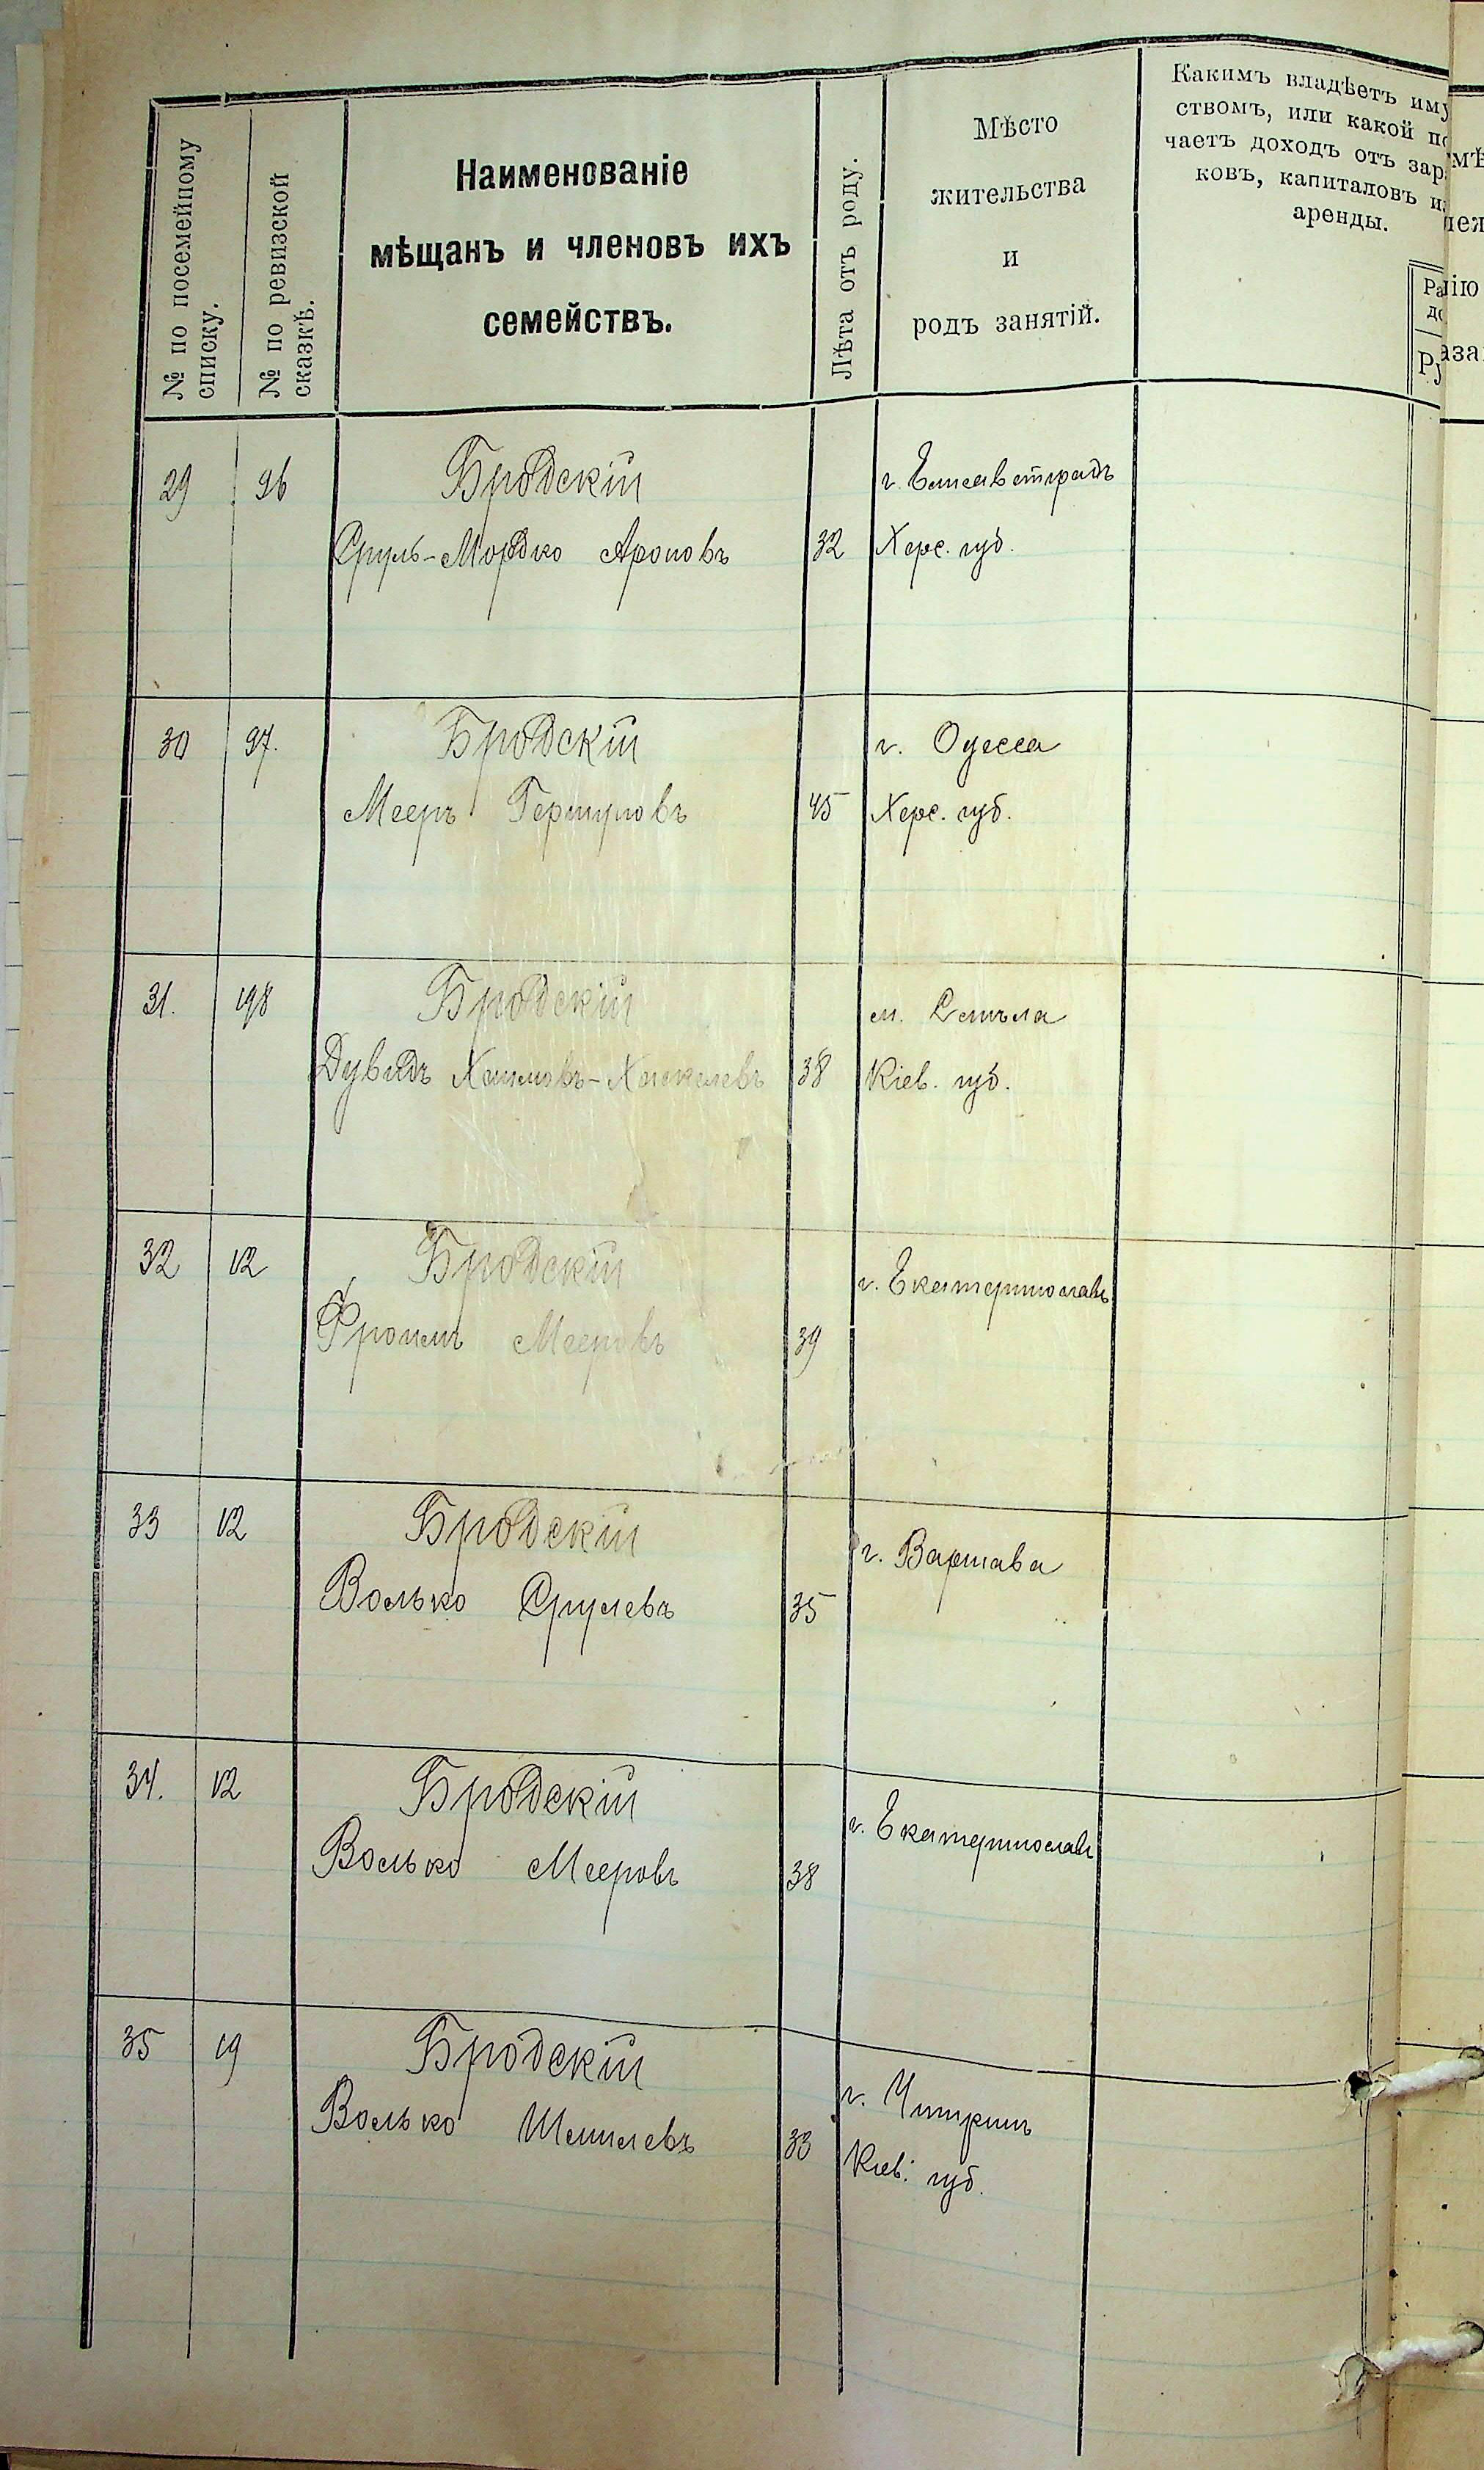 № по посемейному
списку.
№ по ревизской
сказкѣ.
Наименованіе
мѣщанъ и членовъ ихъ
семействъ.
Лѣта отъ роду.
Мѣсто
жительства
и
родъ занятій.
Какимъ владѣетъ иму
ствомъ, или какой по
чаетъ доходъ отъ зар
ковъ, капиталовъ и
аренды.
29 96 Бродскій г. Елисаветградъ
Сруль-Мордко Ароновъ 32 Херс. губ.
30 97. Бродскій г. Одесса
Мееръ Гершуновъ 45 Херс. губ.
31. 198 Бродскій м. Смѣла
Дувидъ Хаимовъ-Хаскелевъ 38 Кіев. губ.
32 12 Бродскій г. Екатеринославъ
Фроимъ Мееровъ 39
33 12 Бродскій г. Варшава
Волько Срулевъ 35
34. 12 Бродскій г. Екатеринославъ
Волько Мееровъ 38
35 19 Бродскій г. Чигиринъ
Волько Шмилевъ 33 Кіев. губ.